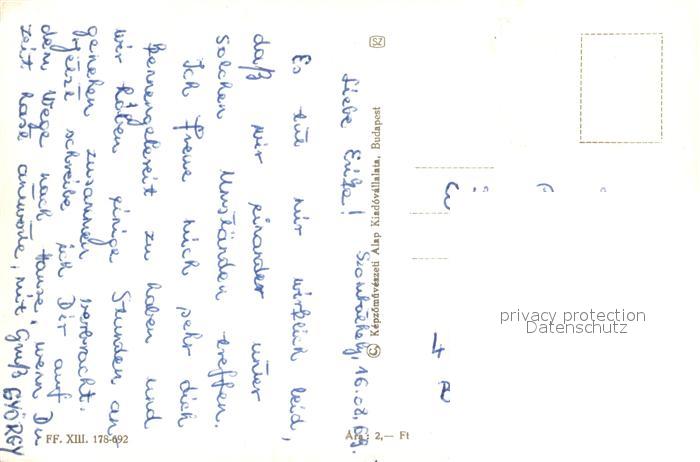 Liebe Erika! Szombathely, 16.08.69.
Es tut mir wirklich leid,
daß wir einander unter
solchen Umständen treffen.
Ich freue mich sehr dich
kennengelernt zu haben und
wir haben einige Stunden an-
genehen zusammen verbracht.
Jetzt schreibe ich Dir auf
dem Wege nach Hause, wenn Du
Zeit hast antworte, mit Gruß GYÖRGY
FF. XIII. 178-692
© Képzőművészeti Alap Kiadóvállalata, Budapest
SZ
Ára: 2,— Ft
privacy protection
Datenschutz